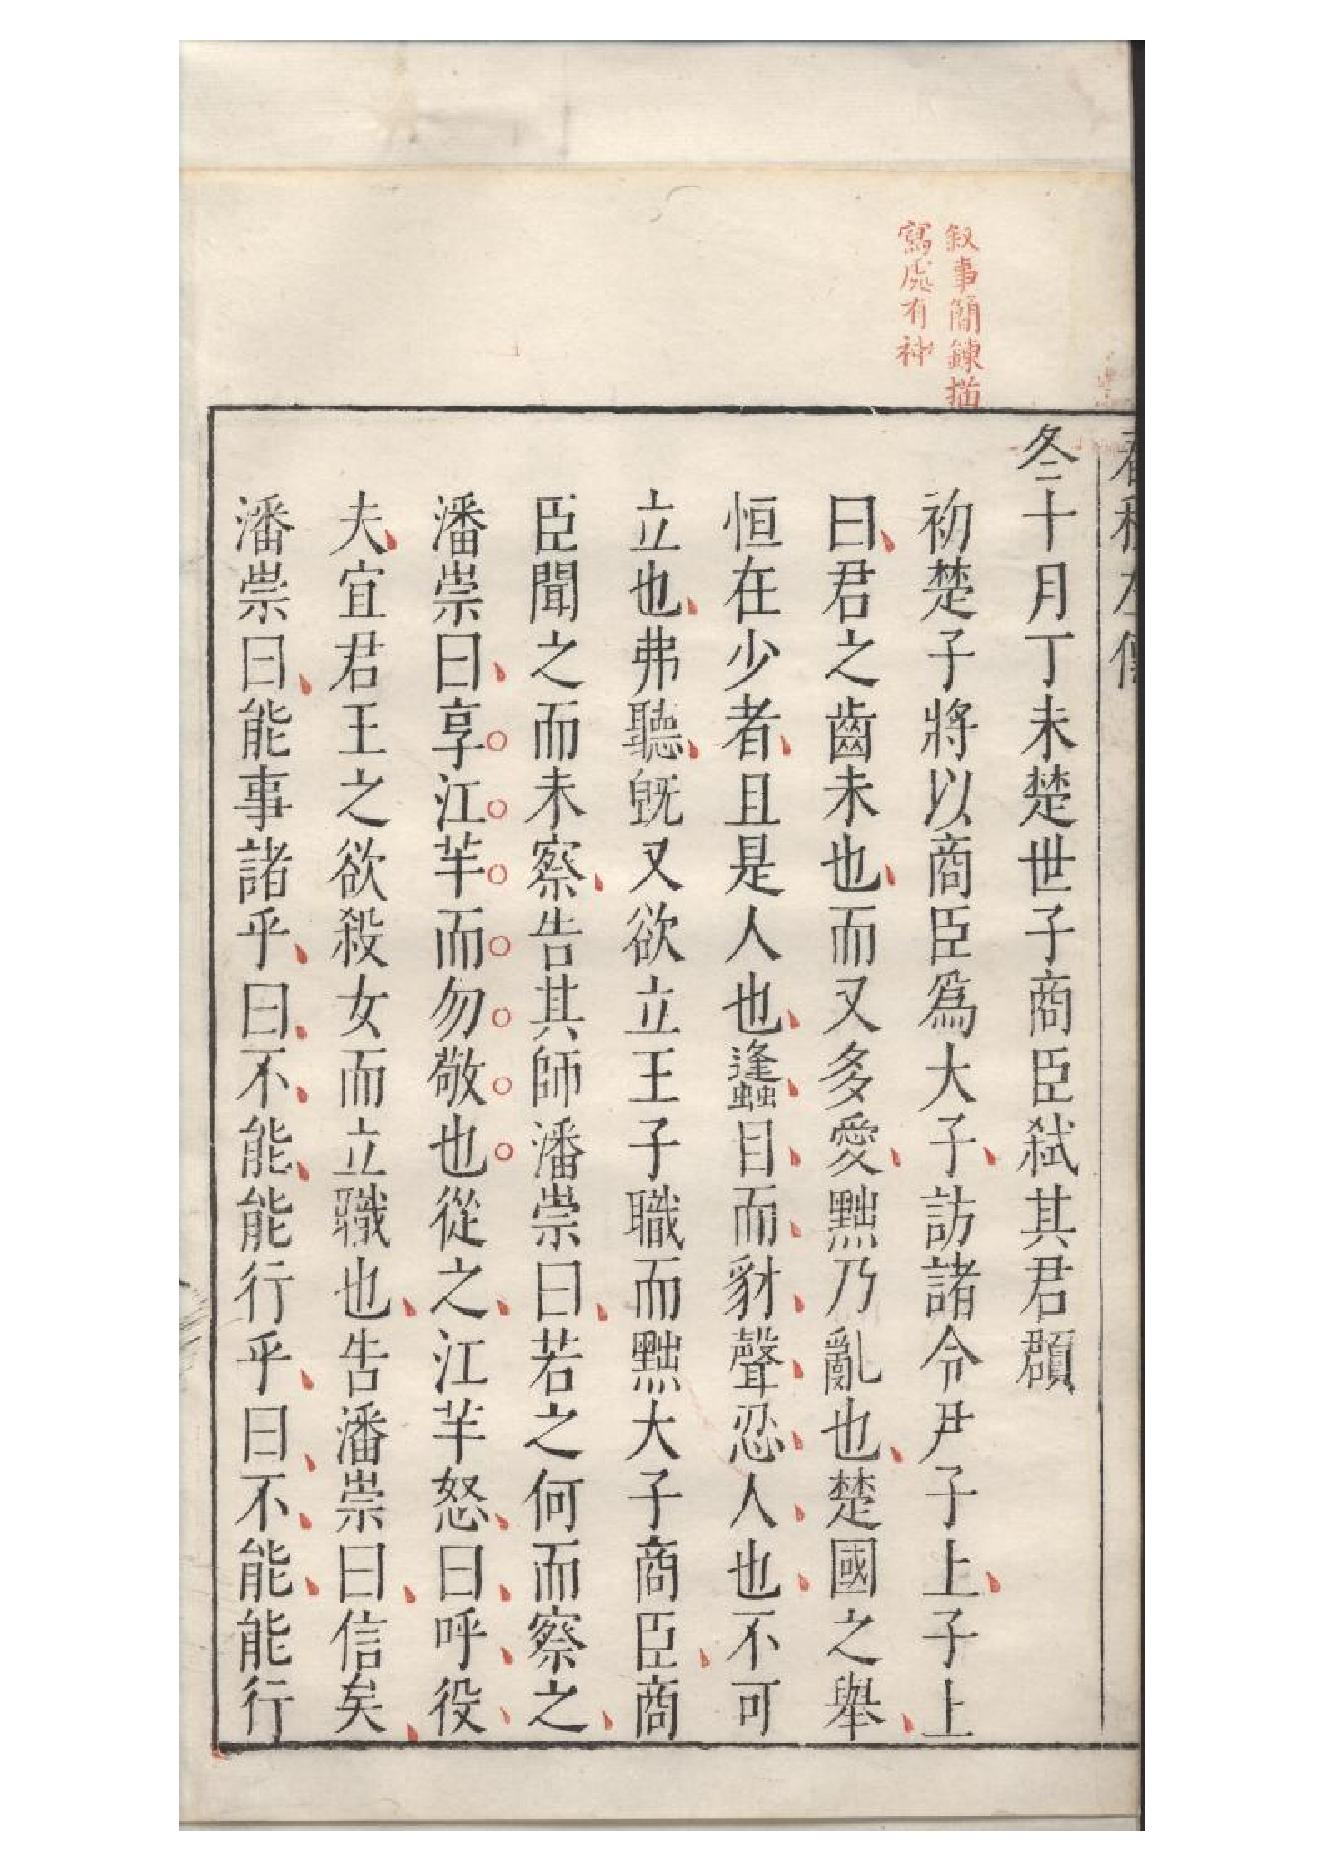 春秋左傳
叙事簡鍊描
寫處有神
冬十月丁未楚世子商臣弑其君頵
初楚子將以商臣爲大子訪諸令尹子上子上
曰君之齒未也而又多愛黜乃亂也楚國之舉
恒在少者且是人也蠭目而豺聲忍人也不可
立也弗聽旣又欲立王子職而黜大子商臣商
臣聞之而未察告其師潘崇曰若之何而察之
潘崇曰享江芊而勿敬也從之江芊怒曰呼役
夫宜君王之欲殺女而立職也告潘崇曰信矣
潘崇曰能事諸乎曰不能能行乎曰不能能行